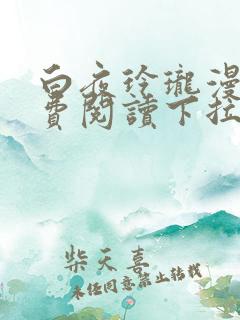 白夜玲瓏漫
費閱讀下拉
柴天喜
未经同意禁止转载